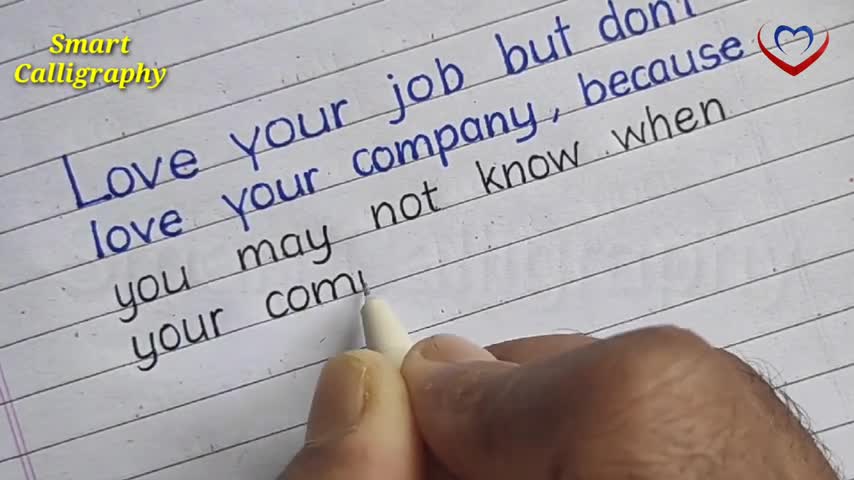 Smart
Calligraphy
Love your job but don't
love your company, because
you may not know when
your com